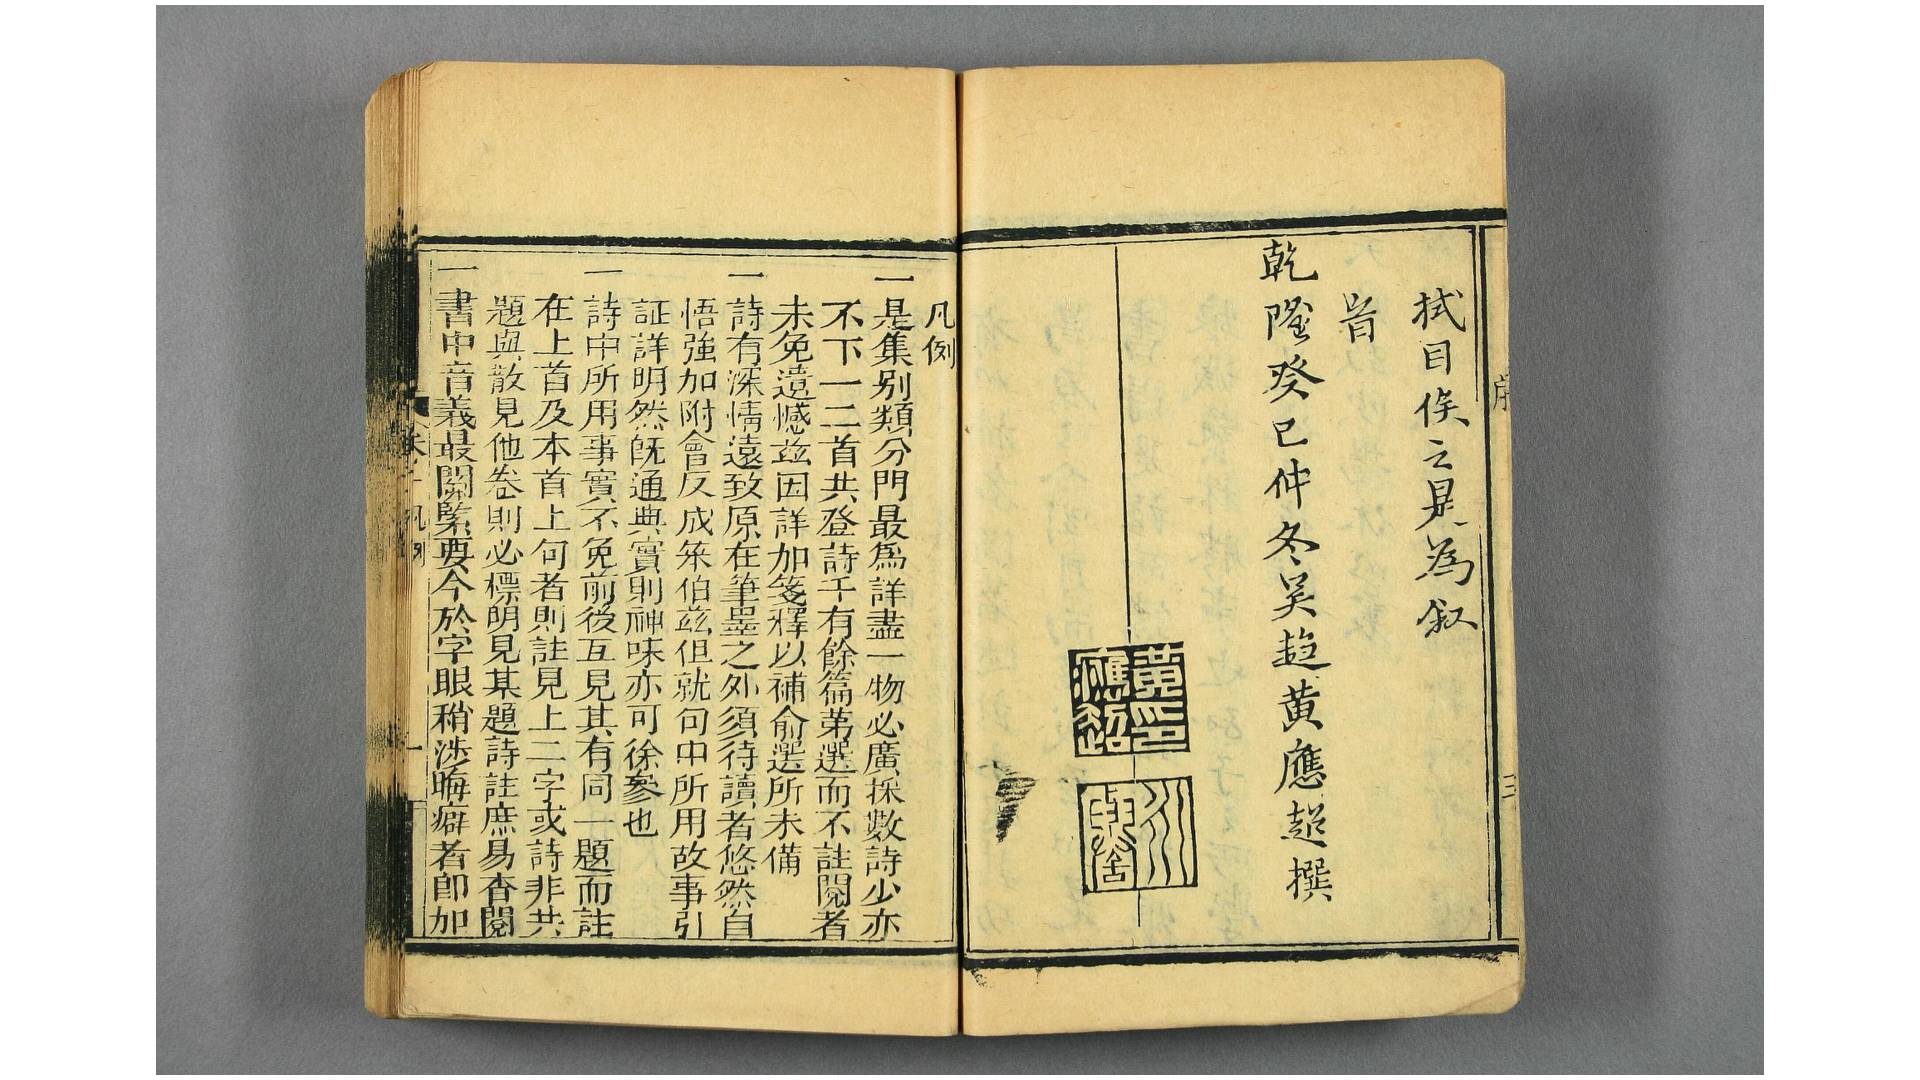 拭目俟之是為叙
旨
乾隆癸巳仲冬吴趋黄應超撰
黄印
應超
凡例
一是集别類分門最為詳盡一物必廣採數詩少亦
不下一二首共登詩千有餘篇第選而不註閱者
未免遺憾兹因詳加箋釋以補俞選所未備
一詩有深情遠致原在筆墨之外須待讀者悠然自
悟強加附會反成笨伯兹但就句中所用故事引
証詳明然旣通典實則神味亦可徐參也
一詩中所用事實不免前後互見其有同一題而註
在上首及本首上句者則註見上二字或詩非共
題與散見他卷則必標明見某題詩註庶易查閱
一書中音義最關緊要今於字眼稍涉晦癖者卽加
凡例
一